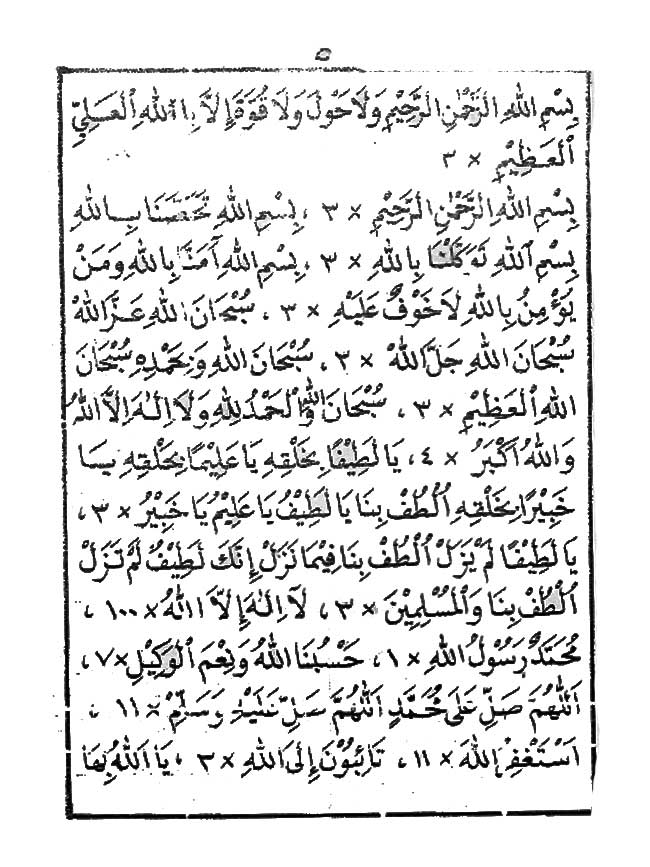 ٥
بِسْمِ اللهِ الرَّحْمٰنِ الرَّحِيْمِ وَلَا حَوْلَ وَلَا قُوَّةَ إِلَّا بِاللهِ الْعَلِيِّ
الْعَظِيْمِ × ٣
بِسْمِ اللهِ الرَّحْمٰنِ الرَّحِيْمِ × ٣ ، بِسْمِ اللهِ تَحَصَّنَا بِاللهِ
بِسْمِ اللهِ تَوَكَّلْنَا بِاللهِ × ٣ ، بِسْمِ اللهِ آمَنَّا بِاللهِ وَمَنْ
يُؤْمِنُ بِاللهِ لَا خَوْفٌ عَلَيْهِ × ٣ ، سُبْحَانَ اللهِ عَزَّ اللهُ
سُبْحَانَ اللهِ جَلَّ اللهُ × ٣ ، سُبْحَانَ اللهِ وَبِحَمْدِهِ سُبْحَانَ
اللهِ الْعَظِيْمِ × ٣ ، سُبْحَانَ اللهِ وَالْحَمْدُ لِلهِ وَلَا اِلٰهَ اِلَّا اللهُ
وَاللهُ اَكْبَرُ × ٤ ، يَا لَطِيْفًا بِخَلْقِهِ يَا عَلِيْمًا بِخَلْقِهِ يَا
خَبِيْرًا بِخَلْقِهِ اُلْطُفْ بِنَا يَا لَطِيْفُ يَا عَلِيْمُ يَا خَبِيْرُ × ٣ ،
يَا لَطِيْفًا لَمْ يَزَلْ اُلْطُفْ بِنَا فِيْمَا نَزَلْ إِنَّكَ لَطِيْفٌ لَمْ تَزَلْ
اُلْطُفْ بِنَا وَالْمُسْلِمِيْنَ × ٣ ، لَآ اِلٰهَ اِلَّا اللهُ × ١٠٠ ،
مُحَمَّدٌ رَسُوْلُ اللهِ × ١ ، حَسْبُنَا اللهُ وَنِعْمَ الْوَكِيْلُ × ٧ ،
اَللّٰهُمَّ صَلِّ عَلَى مُحَمَّدٍ اَللّٰهُمَّ صَلِّ عَلَيْهِ وَسَلِّمْ × ١١ ،
اَسْتَغْفِرُ اللهَ × ١١ ، تَائِبُوْنَ إِلَى اللهِ × ٣ ، يَا اَللهُ بِهَا